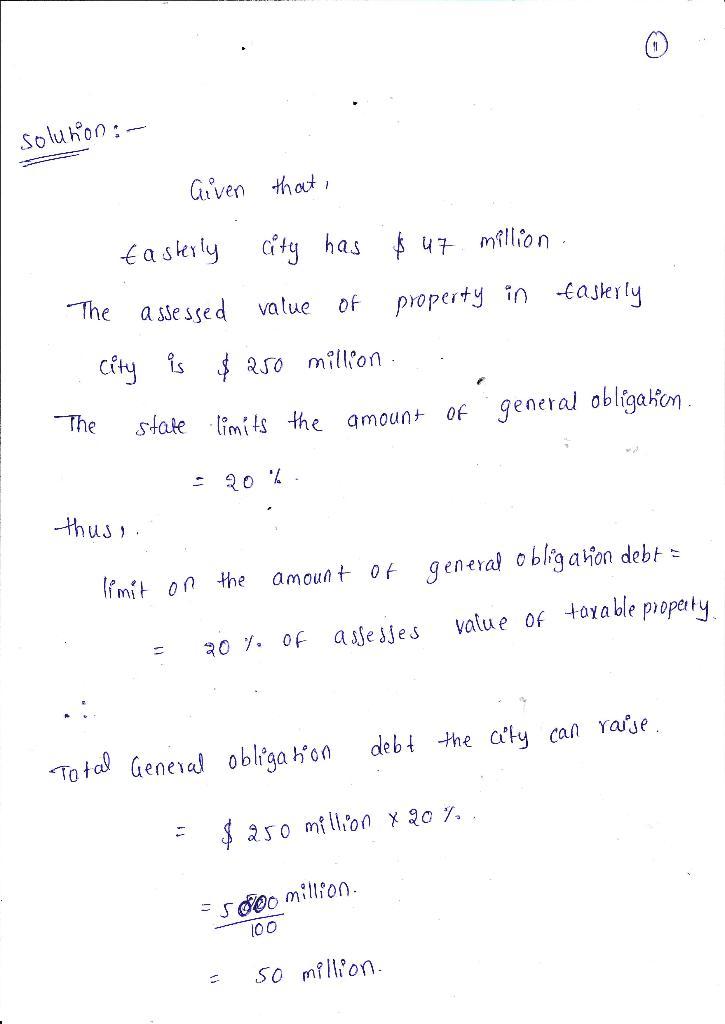 1
Solution :-
Given that,
Easterly City has $ 47 million.
The assessed value of property in Easterly
City is $ 250 million.
The state limits the amount of general obligation.
= 20 %.
thus,
limit on the amount of general obligation debt =
= 20 % of assesses value of taxable property.
∴
Total General obligation debt the city can raise.
= $ 250 million x 20 %.
= 5000 million.
100
= 50 million.